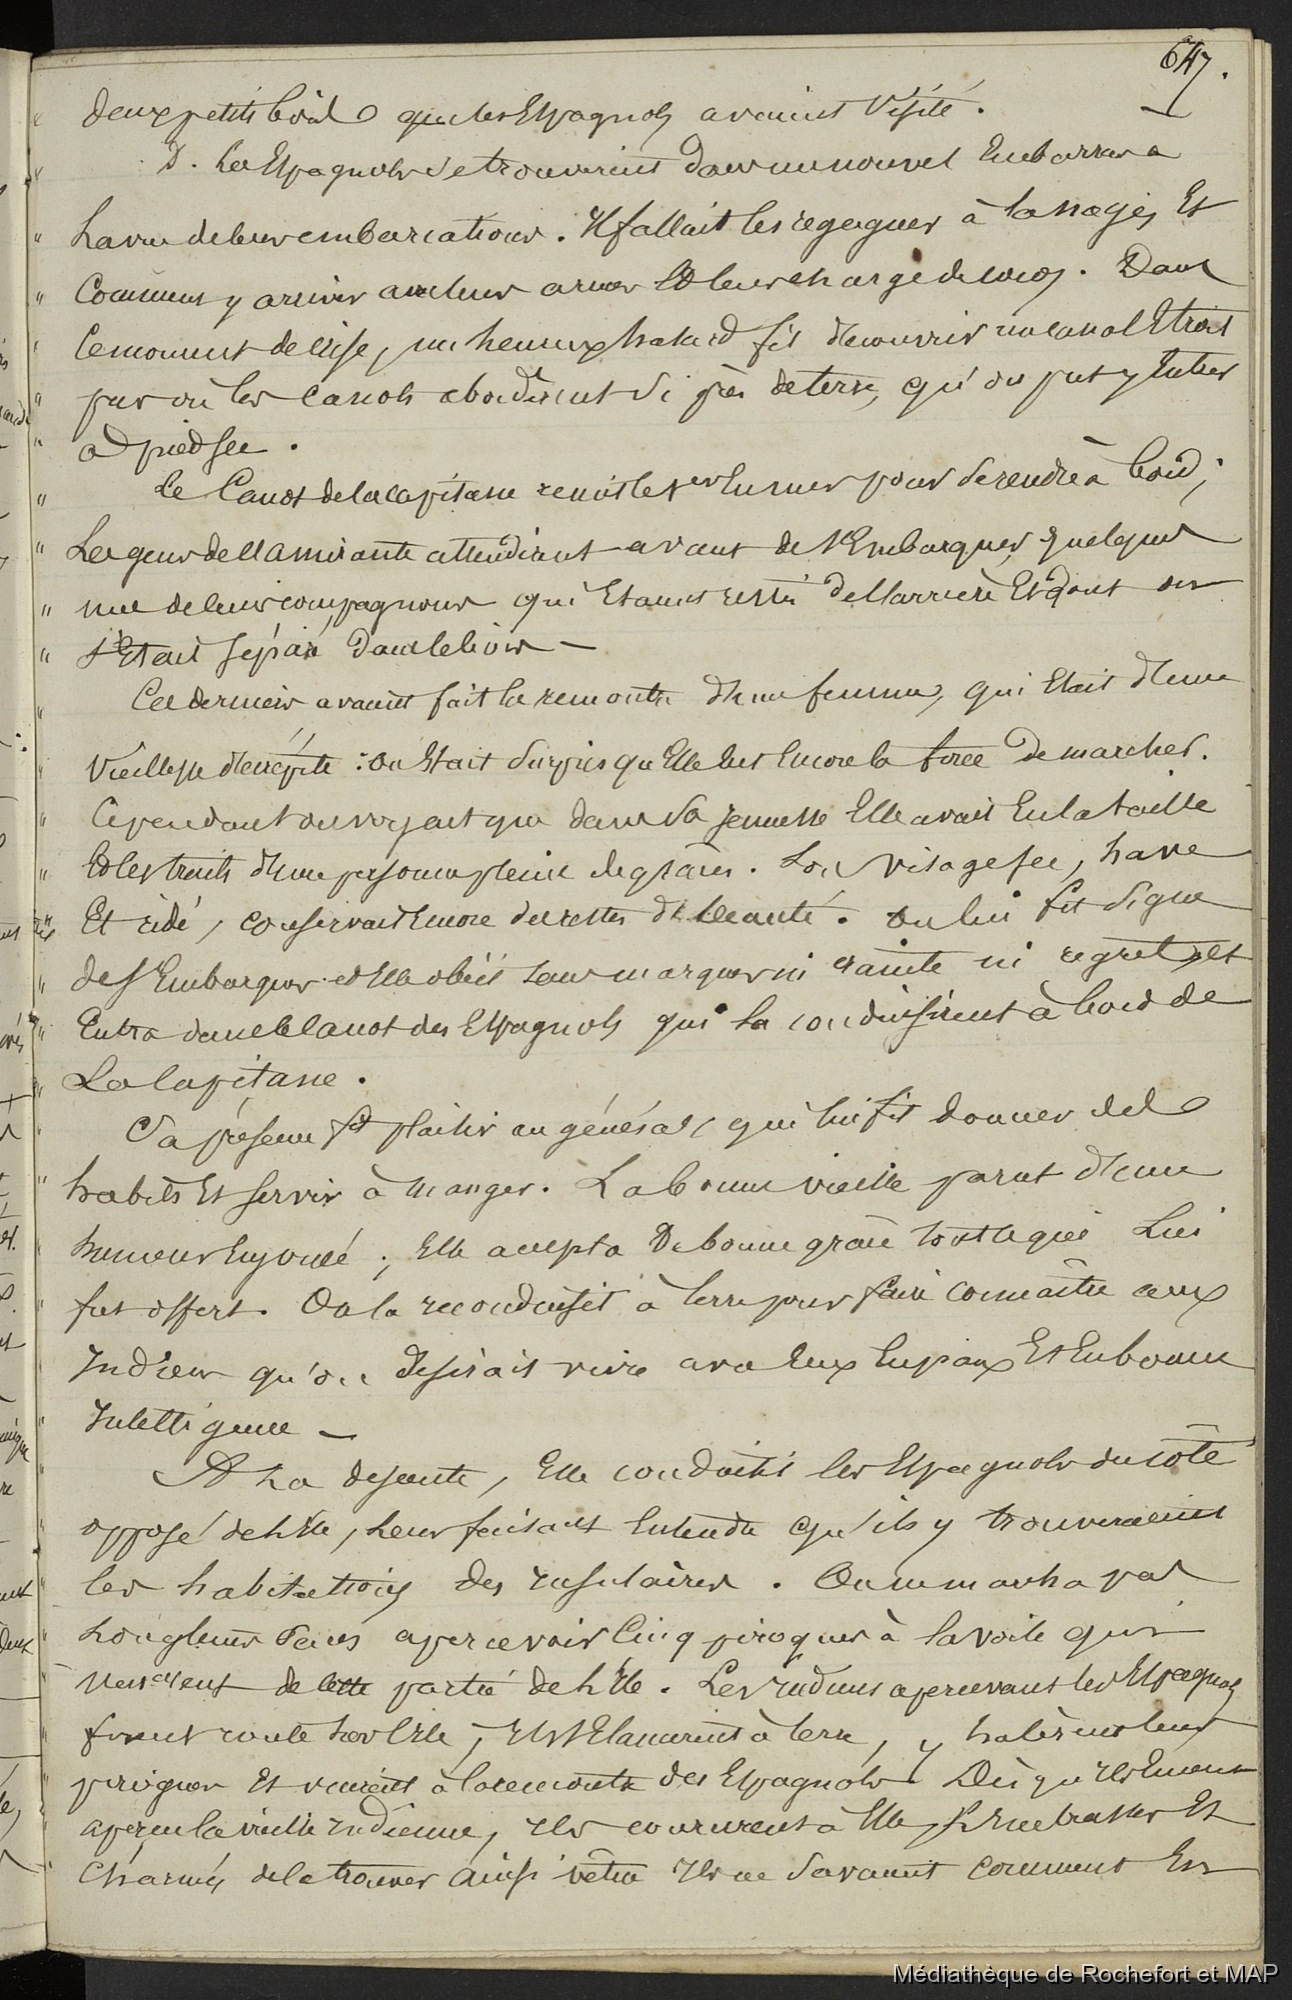 647.
deux petits bois que les Espagnols avaient visité.
D. Les Espagnols se trouvèrent dans un nouvel Embarras a
La vue de leurs embarcations. Il fallait les regagner à la nage, Et
Comment y arriver avec leurs armes Et leur charge de cocos. Dans
Ce moment de crise, un heureux hasard fit découvrir un canal Etroit
par où les Canots abordèrent si près de terre, qu'on put y Entrer
a pied sec.
Le Canot de la Capitane remit les 1ers En mer pour se rendre à bord;
Les gens de l'Amirante attendirent avant de s'Embarquer, quelques
uns de leurs compagnons qui Etaient restés de l'arrière Et dont on
s'Etait séparé dans le bois —
Ces derniers avaient fait la rencontre d'une femme, qui Etait d'une
Vieillesse décrépite : On Etait surpris qu'Elle eut Encore la force de marcher.
Cependant on voyait que dans sa jeunesse Elle avait Eu la taille
Et les traits d'une personne pleine de grâces. Son visage sec, have
Et ridé, conservait Encore des restes de beauté. On lui fit signe
de s'Embarquer et Elle obéit sans marquer ni crainte ni regret, et
Entra dans le Canot des Espagnols qui la conduisirent à bord de
La Capitane.
Sa présence fit plaisir au général, qui lui fit donner des
habits Et servir à Manger. La bonne vieille parut d'une
humeur Enjouée; Elle accepta de bonne grâce tout ce qui Lui
fut offert. On la reconduisit à terre pour faire connaître aux
Indiens qu'on desirait vivre avec Eux En paix Et En bonne
Intelligence —
A La descente, Elle conduisit les Espagnols du côté
opposé de l'Ile, Leur faisant Entendre qu'ils y trouveraient
les habitations des Insulaires. On ne marcha pas
Longtems sans apercevoir Cinq pirogues à la voile qui
venaient de cette partie de l'Ile. Les Indiens apercevant les Espagnols
firent route sur l'Ile, Ils s'Elancèrent à terre, y halèrent leurs
pirogues Et vinrent à la rencontre des Espagnols. Dès qu'Ils Eurent
aperçu la vieille Indienne, Ils coururent à Elle, L'Embrasser Et
Charmés de la trouver ainsi vêtue Ils ne savaient comment En
Médiathèque de Rochefort et MAP